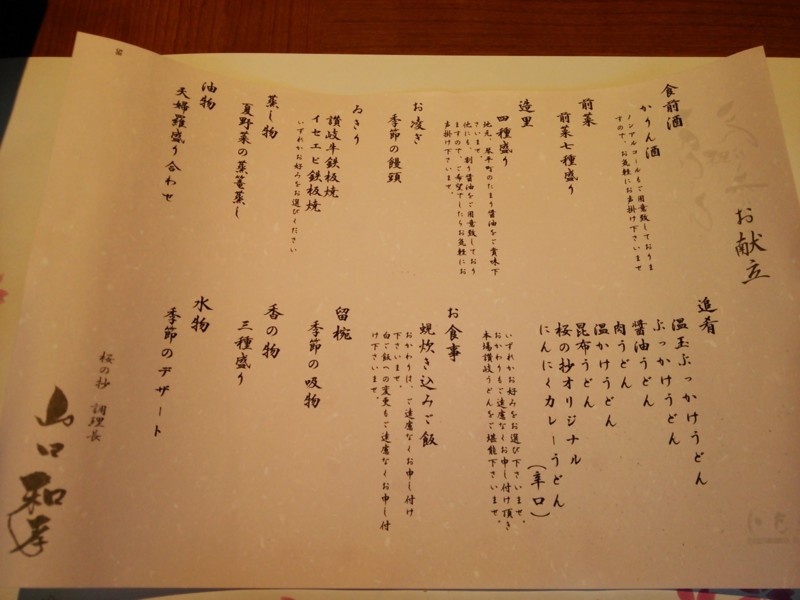 お献立
食前酒
かりん酒
ノンアルコールもご用意致しておりま
すので、お気軽にお声掛け下さいませ
前菜
前菜七種盛り
造里
四種盛り
地元、琴平町のたまり醤油をご賞味下
さいませ。
他にも、割り醤油をご用意致しており
ますので、ご希望でしたらお気軽にお
声掛け下さいませ。
お凌ぎ
季節の饅頭
讃岐牛鉄板焼
イセエビ鉄板焼
いずれかお好みをお選びください
蒸し物
夏野菜の蒸篭蒸し
油物
天婦羅盛り合わせ
追肴
温玉ぶっかけうどん
ぶっかけうどん
醤油うどん
肉うどん
温かけうどん
昆布うどん
桜の抄オリジナル
にんにくカレーうどん
(辛口)
いずれかお好みをお選び下さいませ。
おかわりもご遠慮なくお申し付け頂き
本場讃岐うどんをご堪能下さいませ。
お食事
蜆炊き込みご飯
おかわりは、ご遠慮なくお申し付け
下さいませ。
白ご飯への変更もご遠慮なくお申し付
け下さいませ。
留椀
季節の吸物
香の物
三種盛り
水物
季節のデザート
桜の抄 調理長
山口和孝